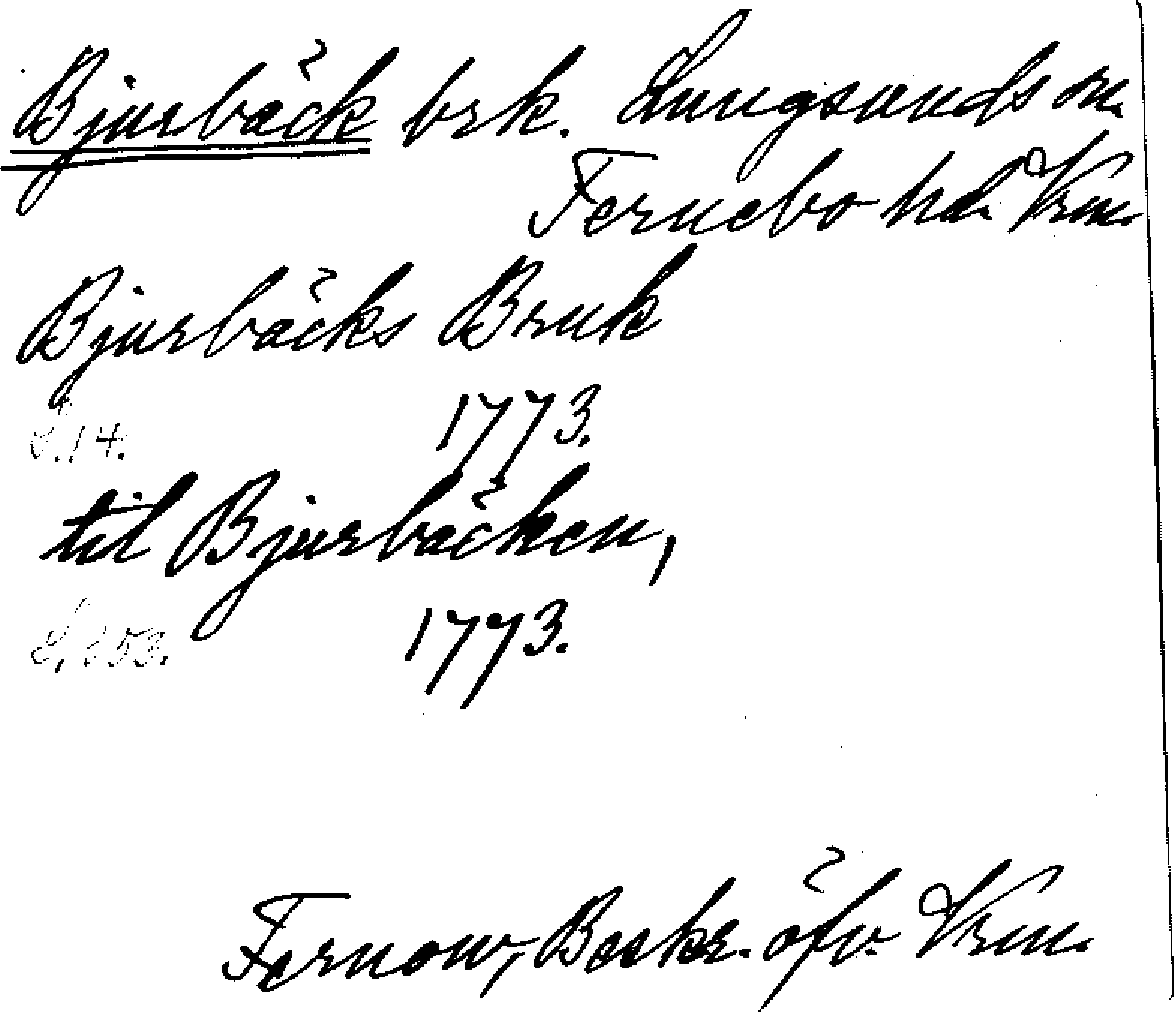 Bjurbäck brk. Lungsunds sn.
Fernebo hd. Vrm.
Bjurbäcks Bruk
S. 14. 1773.
til Bjurbäcken,
S. 253. 1773.
Fernow, Beskr. öfv. Vrm.